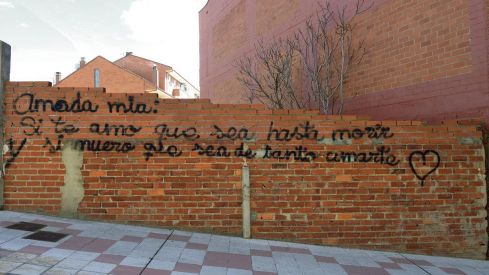 Amada mia:
Si te amo que sea hasta morir
y si muero que sea de tanto amarte